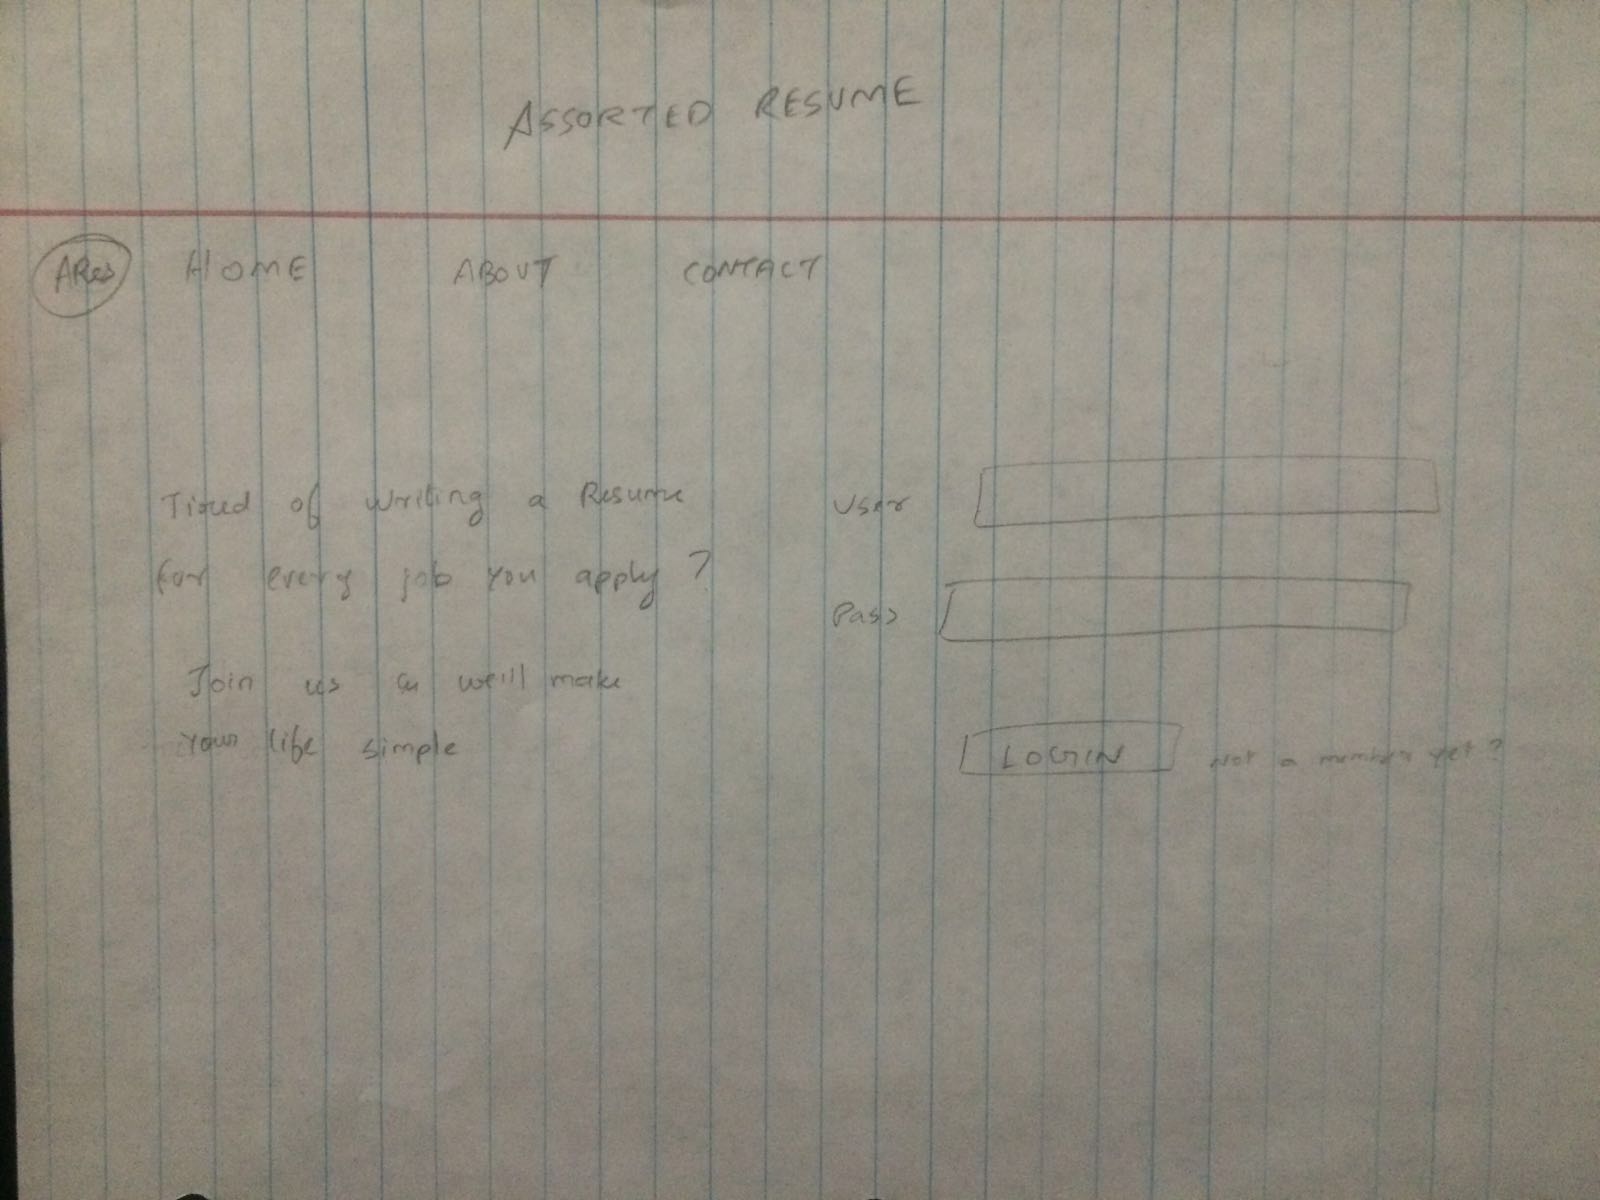 ASSORTED RESUME
ARes HOME ABOUT CONTACT
Tired of writing a Resume
for every job you apply?
Join us we'll make
your life simple
User
Pass
LOGIN Not a member yet?